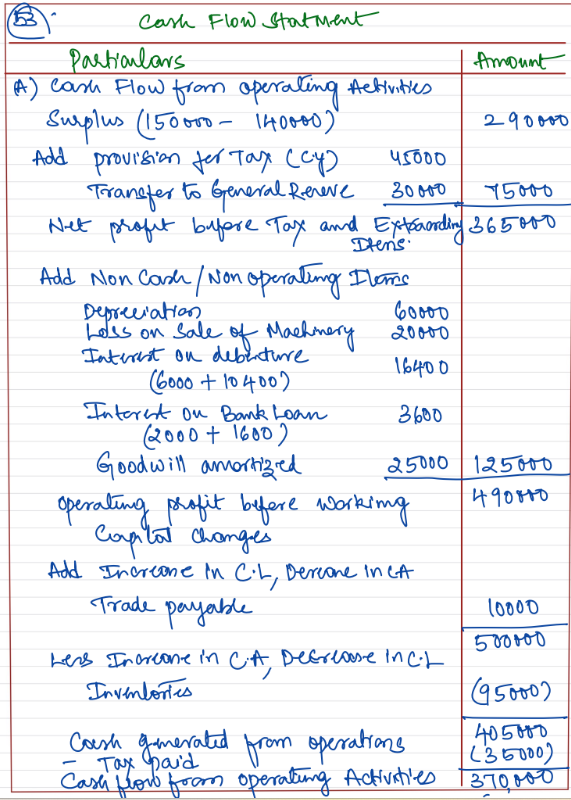 53
Cash Flow Statment
Particulars Amount
A) Cash Flow from operating Activities
Surplus (150000 - 140000) 290000
Add provision for Tax (CY) 45000
Transfer to General Rererve 30000 75000
Net profit before Tax and Extraording 365000
Items.
Add Non Cash / Non operating Items
Depreciation 60000
Loss on Sale of Machinery 20000
Interest on debenture 16400
(6000 + 10400)
Interest on Bank Loan 3600
(2000 + 1600)
Goodwill amortized 25000 125000
operating profit before working 490000
Capital changes
Add Increase in C.L, Decrease in CA
Trade payable 10000
500000
Less Increase in C.A, Decrease in C.L
Inventories (95000)
Cash generated from operations 405000
- Tax paid (35000)
Cash flow from operating Activities 370,000